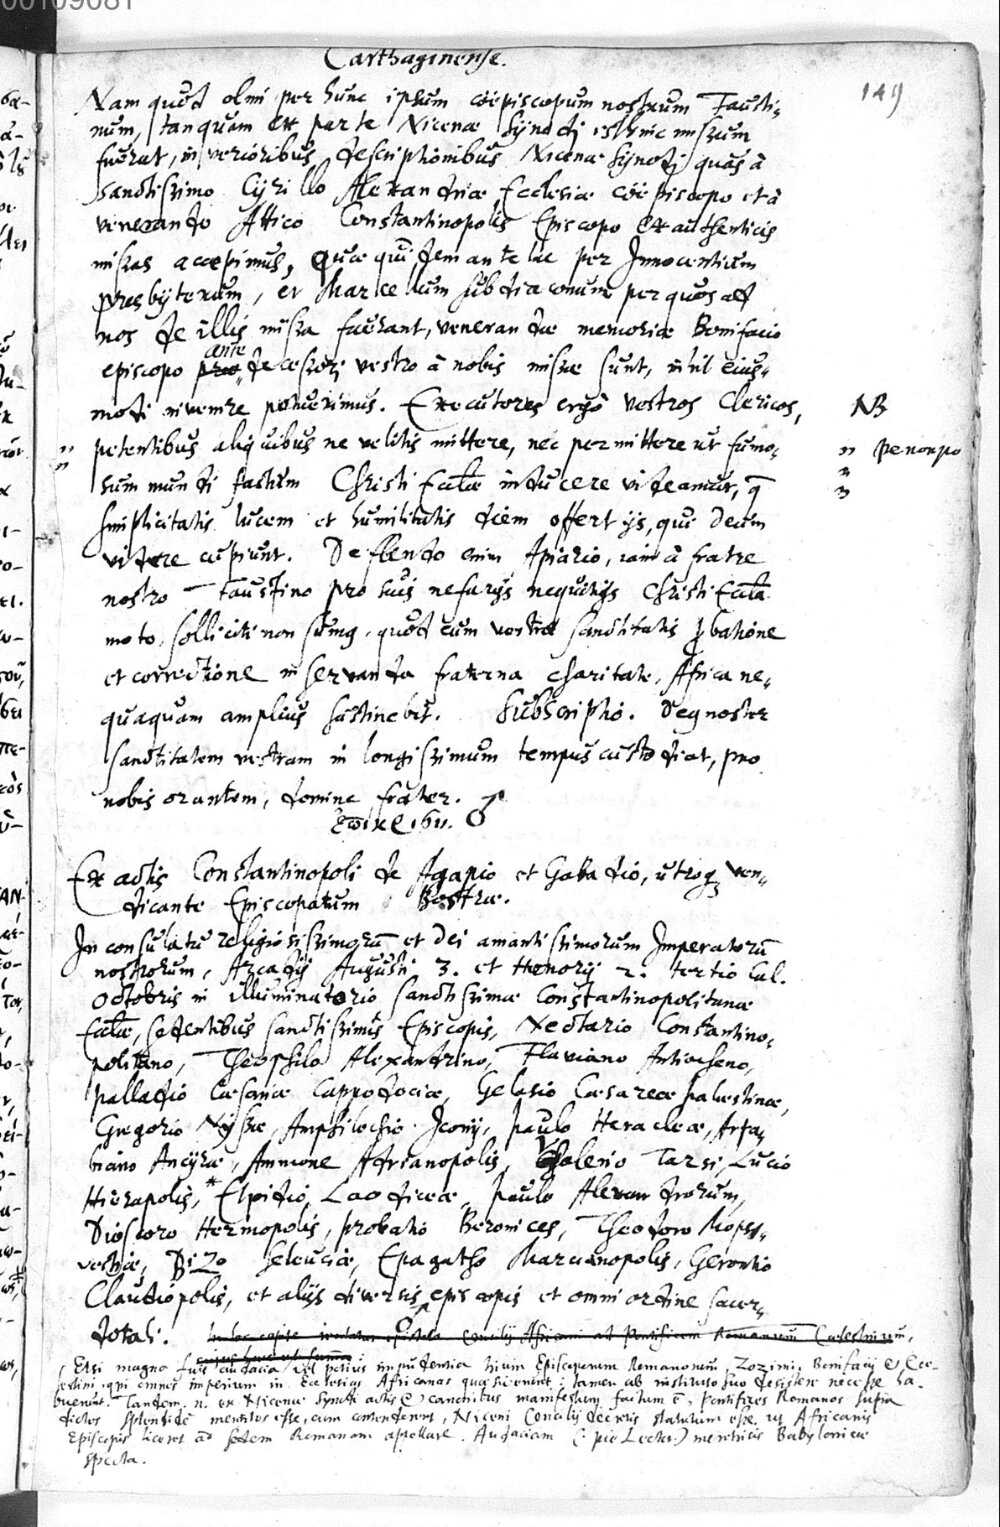 00109081
Carthaginense.
149
Nam quod olim per hunc ipsum coepiscopum nostrum Fausti-
num, tanquam ex parte Nicenae Synodi isthinc missum
fuerat, in verioribus descriptionibus Nicenae Synodi quas à
sanctissimo Cyrillo Alexandriae Ecclesiae coepiscopo et à
venerando Attico Constantinopolis Episcopo ex authenticis
missas accepimus, quae quidem ante hac per Innocentium
presbyterum, et Marcellum subdiaconum per quos ad
nos de illis missa fuerant, venerandae memoriae Bonifacio
ante
episcopo decessori vestro à nobis missae sunt, nihil eius-
modi invenire potuerimus. Executores ergo vestros Clericos,
NB
petentibus aliquibus ne velitis mittere, nec permittere ut fumo-
sum mundi fastum Christi Eccliae inducere videamur, q
simplicitatis lucem et humilitatis diem offert ijs, qui Deum
videre cupiunt. Deflendo enim Apiario, iam à fratre
nostro Faustino pro suis nefarijs nequitijs Christi Ecclia
moto, solliciti non sumq, quod eum vestrae sanctitatis pbatione
et correctione in servanda fraterna charitate, Africa ne-
quaquam amplius sustinebit. Subscriptio. Deq noster
sanctitatem vestram in longissimum tempus custodiat, pro
nobis orantem, domine frater.
Ex actis Constantinopoli de Agapio et Gabadio, utroq ven-
dicante Episcopatum Bostrae.
In consulatu religiosissimorū et Dei amantissimorum Imperatorū
nostrorum, Arcadij Augusti 3. et Honorij 2. tertio Cal.
Octobris in illuminatorio sanctissimae Constantinopolitanae
Eccliae, sedentibus sanctissimis Episcopis, Nectario Constantino-
politano, Theophilo Alexandrino, Flaviano Antiocheno,
Palladio Caesareae Cappodociae, Gelasio Caesareae Palaestinae,
Gregorio Nyssae, Amphilochio Iconij, Paulo Heracleae, Arfa-
biano Ancyrae, Ammone Adrianopolis, Valerio Tarsi, Lucio
Hierapolis, * Elpidio Laodiceae, Paulo Alexandrorum,
Dioscoro Hermopolis, Probatio Beronices, Theodoro Mopsi-
vestiae, Bizo Seleuciae, Epagatho Marcianopolis, Gerontio
Claudiopolis, et alijs diversis episcopis et omni ordine sacer-
dotali.
Etsi magna fuit audacia vel potius impudentia trium Episcoporum Romanorum, Zozimi, Bonifacij & Coe-
lestini, qui omnes imperium in Ecclesias Africanas quaesiverunt: tamen ab instituto suo desistere necesse ha-
buerunt. Tandem n. ex Nicenae Synodi actis & canonibus manifestum factum ē, Pontifices Romanos supra
dictos splendide mentitos esse, cum contenderent, Niceni Concilij decretis statutum esse, ut Africanis
Episcopis liceret ad sedem Romanam appellare. Audaciam (: pie Lector:) meretricis Babylonicae
specta.